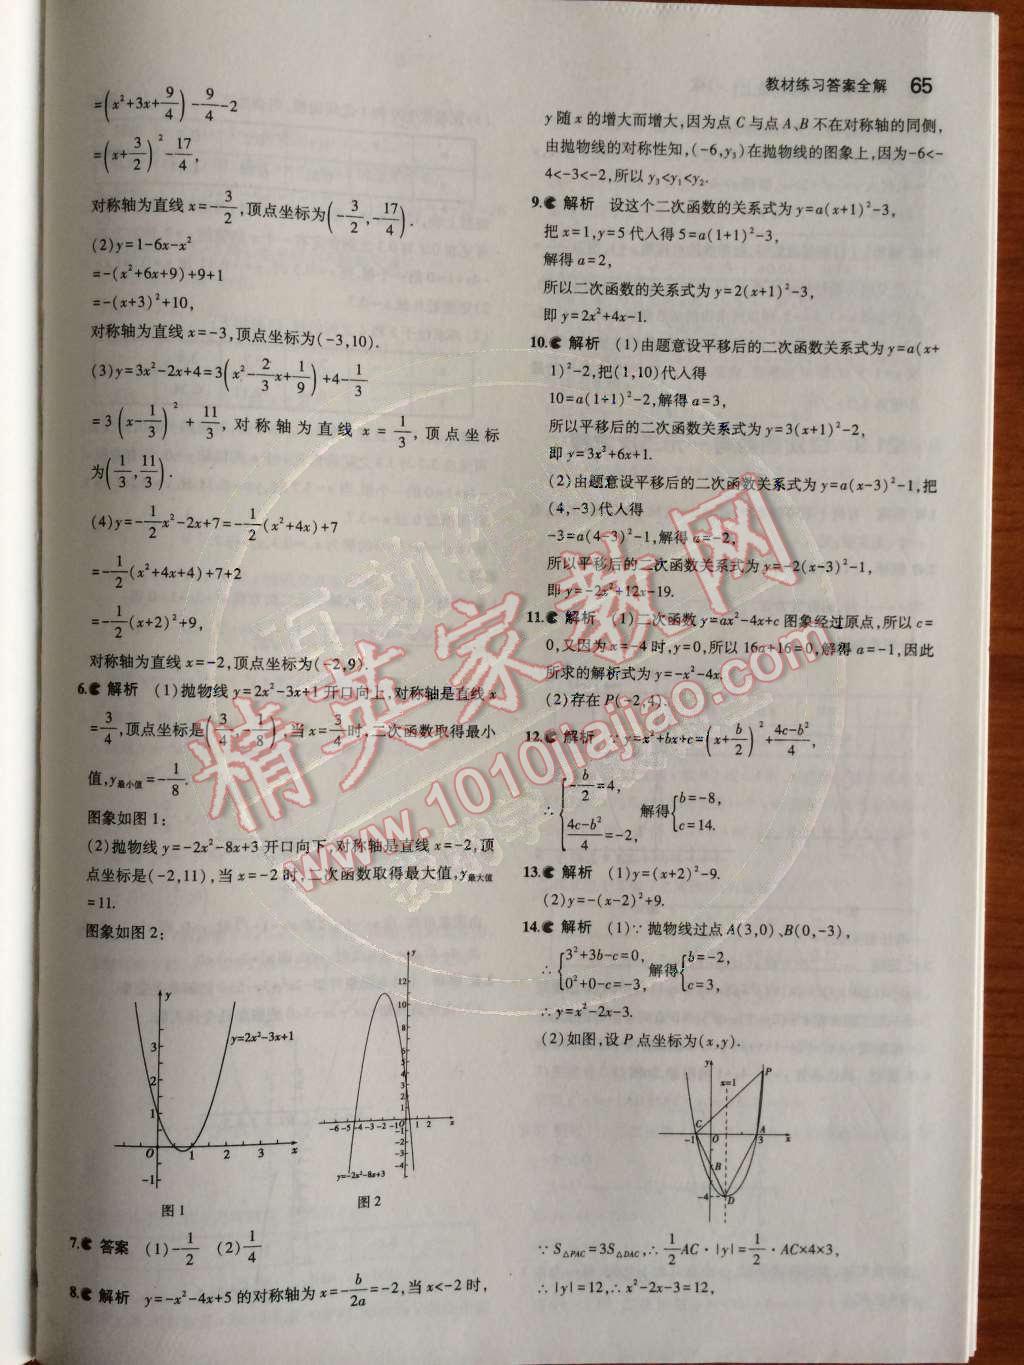 教材练习答案全解 65
=(x²+3x+9/4)-9/4-2
=(x+3/2)²-17/4,
对称轴为直线x=-3/2,顶点坐标为(-3/2,-17/4).
(2)y=1-6x-x²
=-(x²+6x+9)+9+1
=-(x+3)²+10,
对称轴为直线x=-3,顶点坐标为(-3,10).
(3)y=3x²-2x+4=3(x²-2/3x+1/9)+4-1/3
=3(x-1/3)²+11/3,对称轴为直线x=1/3,顶点坐标
为(1/3,11/3).
(4)y=-1/2x²-2x+7=-1/2(x²+4x)+7
=-1/2(x²+4x+4)+7+2
=-1/2(x+2)²+9,
对称轴为直线x=-2,顶点坐标为(-2,9).
6. 解析 (1)抛物线y=2x²-3x+1开口向上,对称轴是直线x
=3/4,顶点坐标是(3/4,-1/8),当x=3/4时,二次函数取得最小
值,y最小值=-1/8.
图象如图1:
(2)抛物线y=-2x²-8x+3开口向下,对称轴是直线x=-2,顶
点坐标是(-2,11),当x=-2时,二次函数取得最大值,y最大值
=11.
图象如图2:
y
3
2
1
-1
O 1 2 3 x
y=2x²-3x+1
图1
y
12
10
8
6
5
4
3
2
1
-6 -5 -4 -3 -2 -1 0 1 2 x
-1
-2
-3
-4
y=-2x²-8x+3
图2
7. 答案 (1)-1/2 (2)1/4
8. 解析 y=-x²-4x+5的对称轴为x=-b/2a=-2,当x<-2时,
y随x的增大而增大,因为点C与点A、B不在对称轴的同侧,
由抛物线的对称性知,(-6,y₃)在抛物线的图象上,因为-6<-
4<-3<-2,所以y₃<y₁<y₂.
9. 解析 设这个二次函数的关系式为y=a(x+1)²-3,
把x=1,y=5代人得5=a(1+1)²-3,
解得a=2,
所以二次函数的关系式为y=2(x+1)²-3,
即y=2x²+4x-1.
10. 解析 (1)由题意设平移后的二次函数关系式为y=a(x+
1)²-2,把(1,10)代人得
10=a(1+1)²-2,解得a=3,
所以平移后的二次函数关系式为y=3(x+1)²-2,
即y=3x²+6x+1.
(2)由题意设平移后的二次函数关系式为y=a(x-3)²-1,把
(4,-3)代人得
-3=a(4-3)²-1,解得a=-2,
所以平移后的二次函数关系式为y=-2(x-3)²-1,
即y=-2x²+12x-19.
11. 解析 (1)二次函数y=ax²-4x+c图象经过原点,所以c=
0,又因为x=-4时,y=0,所以16a+16=0,解得a=-1,因此
所求的解析式为y=-x²-4x.
(2)存在P(-2,4).
12. 解析 ∵y=x²+bx+c=(x+b/2)²+(4c-b²)/4,
∴{-b/2=4, (4c-b²)/4=-2, 解得{b=-8, c=14.
13. 解析 (1)y=(x+2)²-9.
(2)y=-(x-2)²+9.
14. 解析 (1)∵抛物线过点A(3,0)、B(0,-3),
∴{3²+3b-c=0, 0²+0-c=-3, 解得{b=-2, c=3,
∴y=x²-2x-3.
(2)如图,设P点坐标为(x,y).
y
P
x=1
C
A
-1 O 3 x
B
-4
D
∵S△PAC=3S△DAC,∴1/2AC·|y|=1/2·AC×4×3,
∴|y|=12,∴x²-2x-3=12,
精英家教网
www.1010jiajiao.com